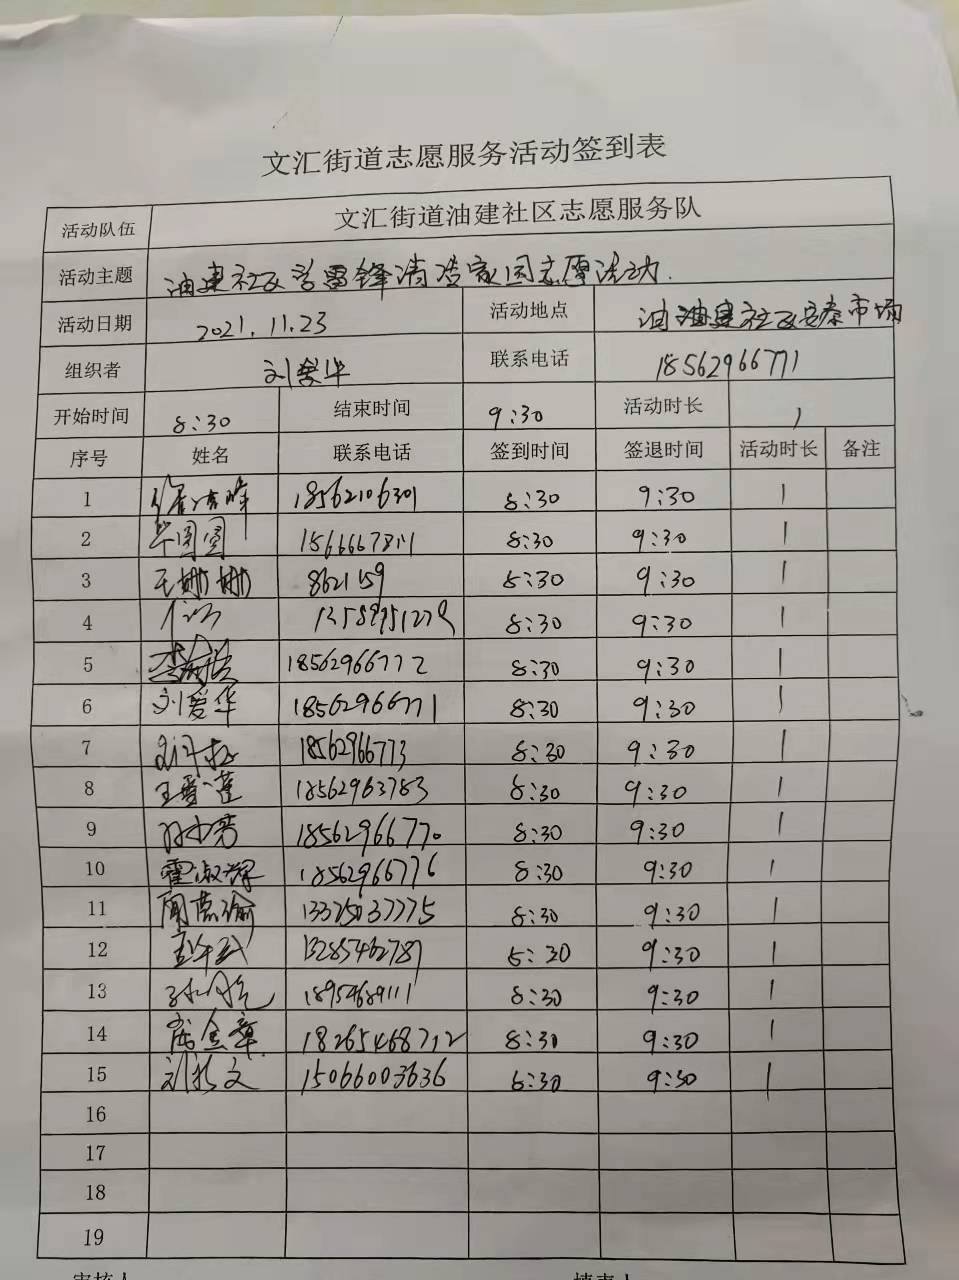 文汇街道志愿服务活动签到表
活动队伍 文汇街道油建社区志愿服务队
活动主题 油建社区学雷锋清洁家园志愿活动.
活动日期 2021.11.23 活动地点 油油建社区安泰市场
组织者 刘爱华 联系电话 18562966771
开始时间 8:30 结束时间 9:30 活动时长 1
序号 姓名 联系电话 签到时间 签退时间 活动时长 备注
1 18562106301 8:30 9:30 1
2 毕圆圆 8:30 9:30 1
3 王娜娜 8621159 8:30 9:30 1
4 8:30 9:30 1
5 18562966772 8:30 9:30 1
6 刘爱华 18562966771 8:30 9:30 1
7 18562966773 8:30 9:30 1
8 王爱莲 18562963783 8:30 9:30 1
9 18562966770 8:30 9:30 1
10 霍淑辉 18562966776 8:30 9:30 1
11 13325037775 8:30 9:30 1
12 13285462787 8:30 9:30 1
13 18954689111 8:30 9:30 1
14 成金章 18265468712 8:30 9:30 1
15 刘新文 15066003636 8:30 9:30 1
16
17
18
19
审核人 填表人